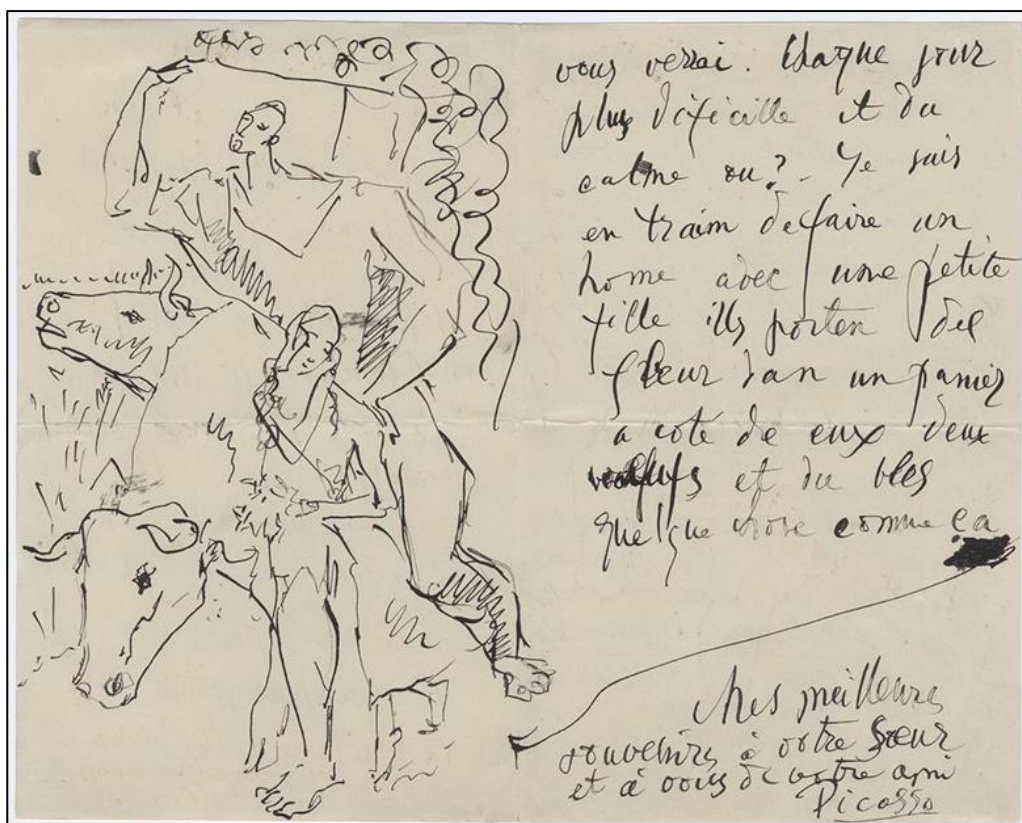 vous verrai. Chaque jour
plus dificille et du
calme ou? - Je suis
en traim de faire un
home avec une petite
fille ills porten des
fleur dan un panier
a cote de eux deux
et du bles
quelque chose comme ça
Mes meilleurs
souvenirs à votre Sœur
et à vous de votre ami
Picasso